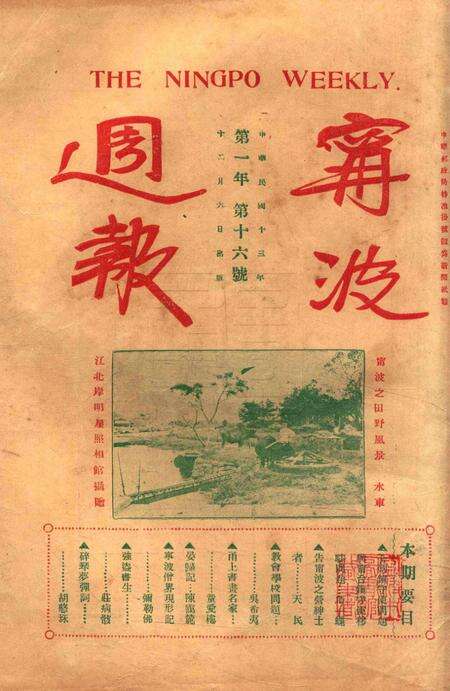 THE NINGPO WEEKLY.
甯波
週報
中華民國十三年
第一年 第十六號
十二月六日出版
中華郵政局特准掛號認爲新聞紙類
甯波之田野風景 水車
江北岸明星照相館攝贈
本期要目
▲告甯波之營紳士
者………天民
▲教會學校問題……
………吳希夷
▲甬上書畫名家……
………童愛樓
▲晏歸記 陳靄麓
▲寧波僧界現形記
………彌勒佛
▲強盜書生……
………莊病骸
▲碎琴夢彈詞……
………胡憨珠